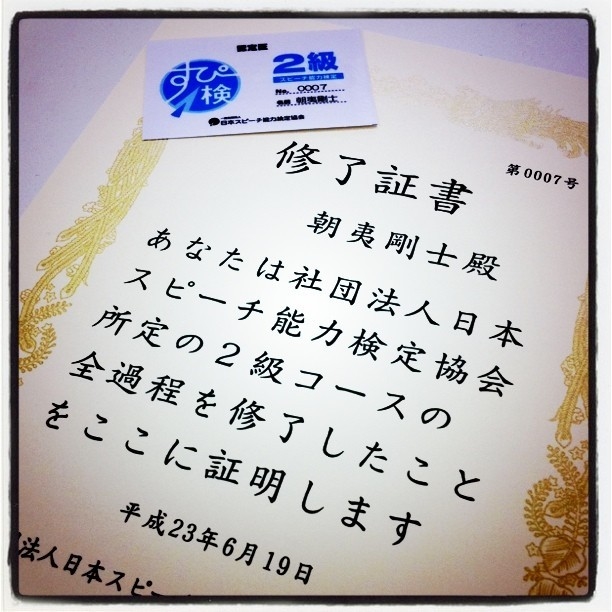 認定証
すぴ検
2級
スピーチ能力検定
No. 0007
名前 朝夷剛士
一般社団法人
日本スピーチ能力検定協会
修了証書
第0007号
朝夷剛士殿
あなたは社団法人日本
スピーチ能力検定協会
所定の2級コースの
全過程を修了したこと
をここに証明します
平成23年6月19日
法人日本スピー